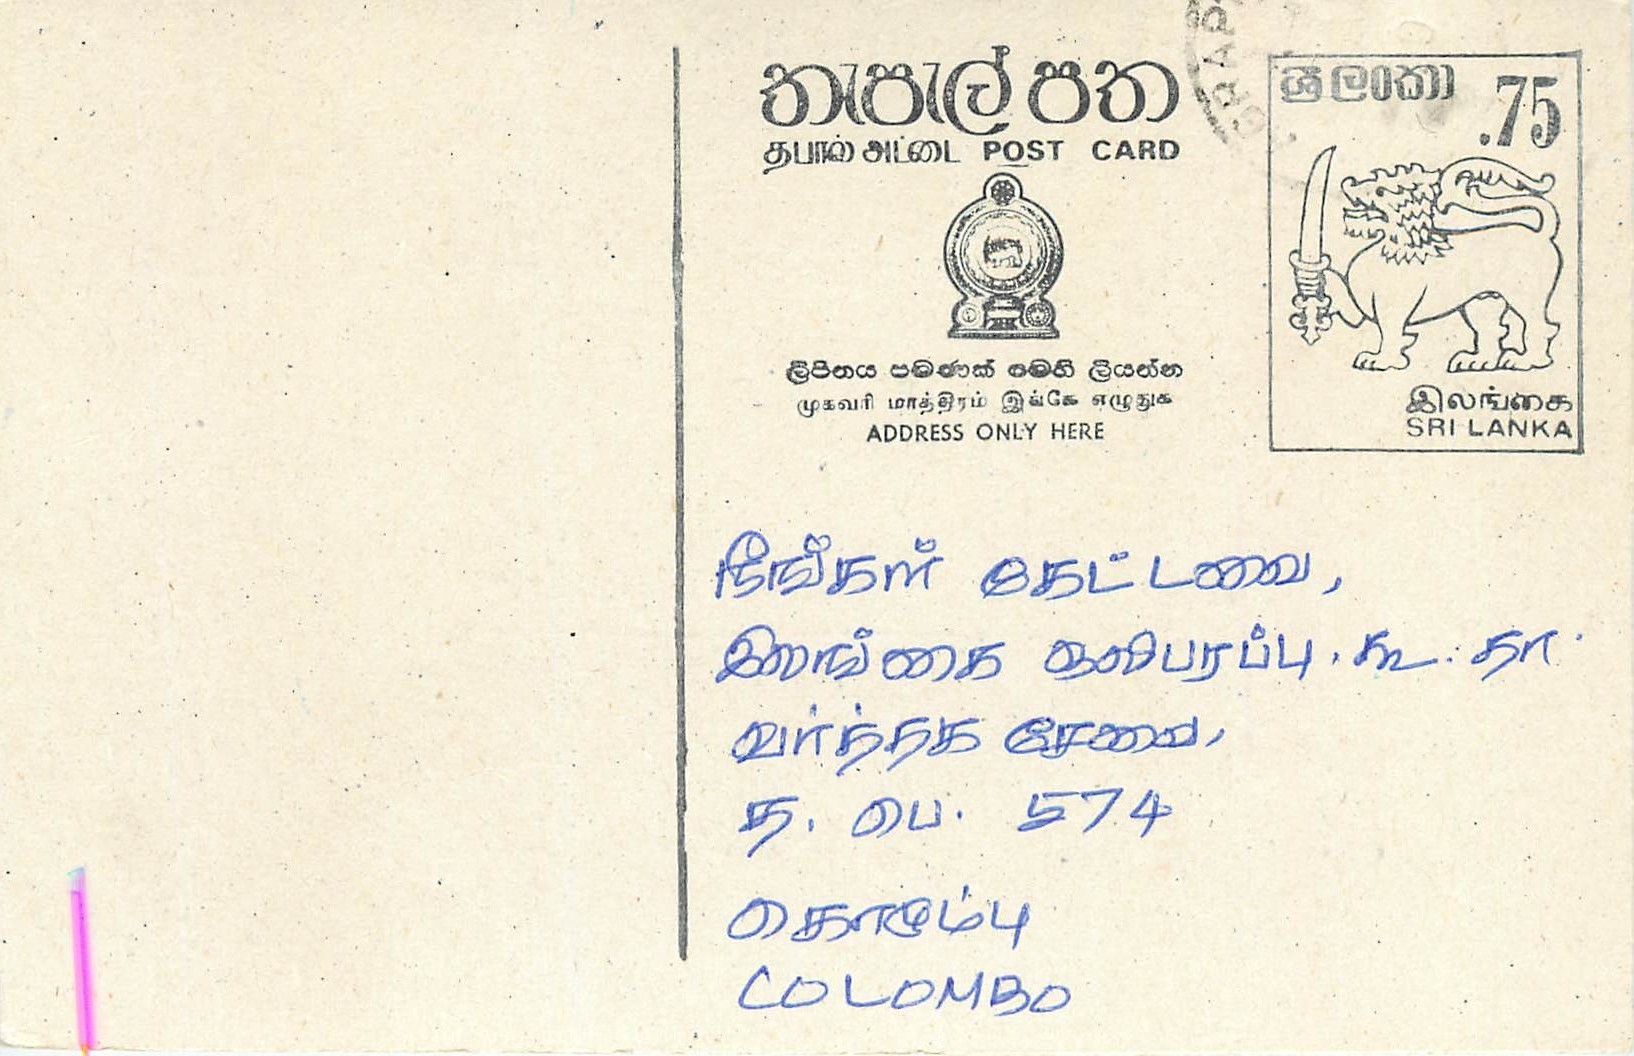 තැපැල් පත
தபால் அட்டை POST CARD
ශ්‍රී ලංකා .75
ලිපිනය පමණක් මෙහි ලියන්න
முகவரி மாத்திரம் இங்கே எழுதுக
ADDRESS ONLY HERE
இலங்கை
SRI LANKA
நீங்கள் கேட்டவை,
இலங்கை ஒலிபரப்பு. கூ. தா.
வர்த்தக சேவை,
த. பெ. 574
கொழும்பு
COLOMBO